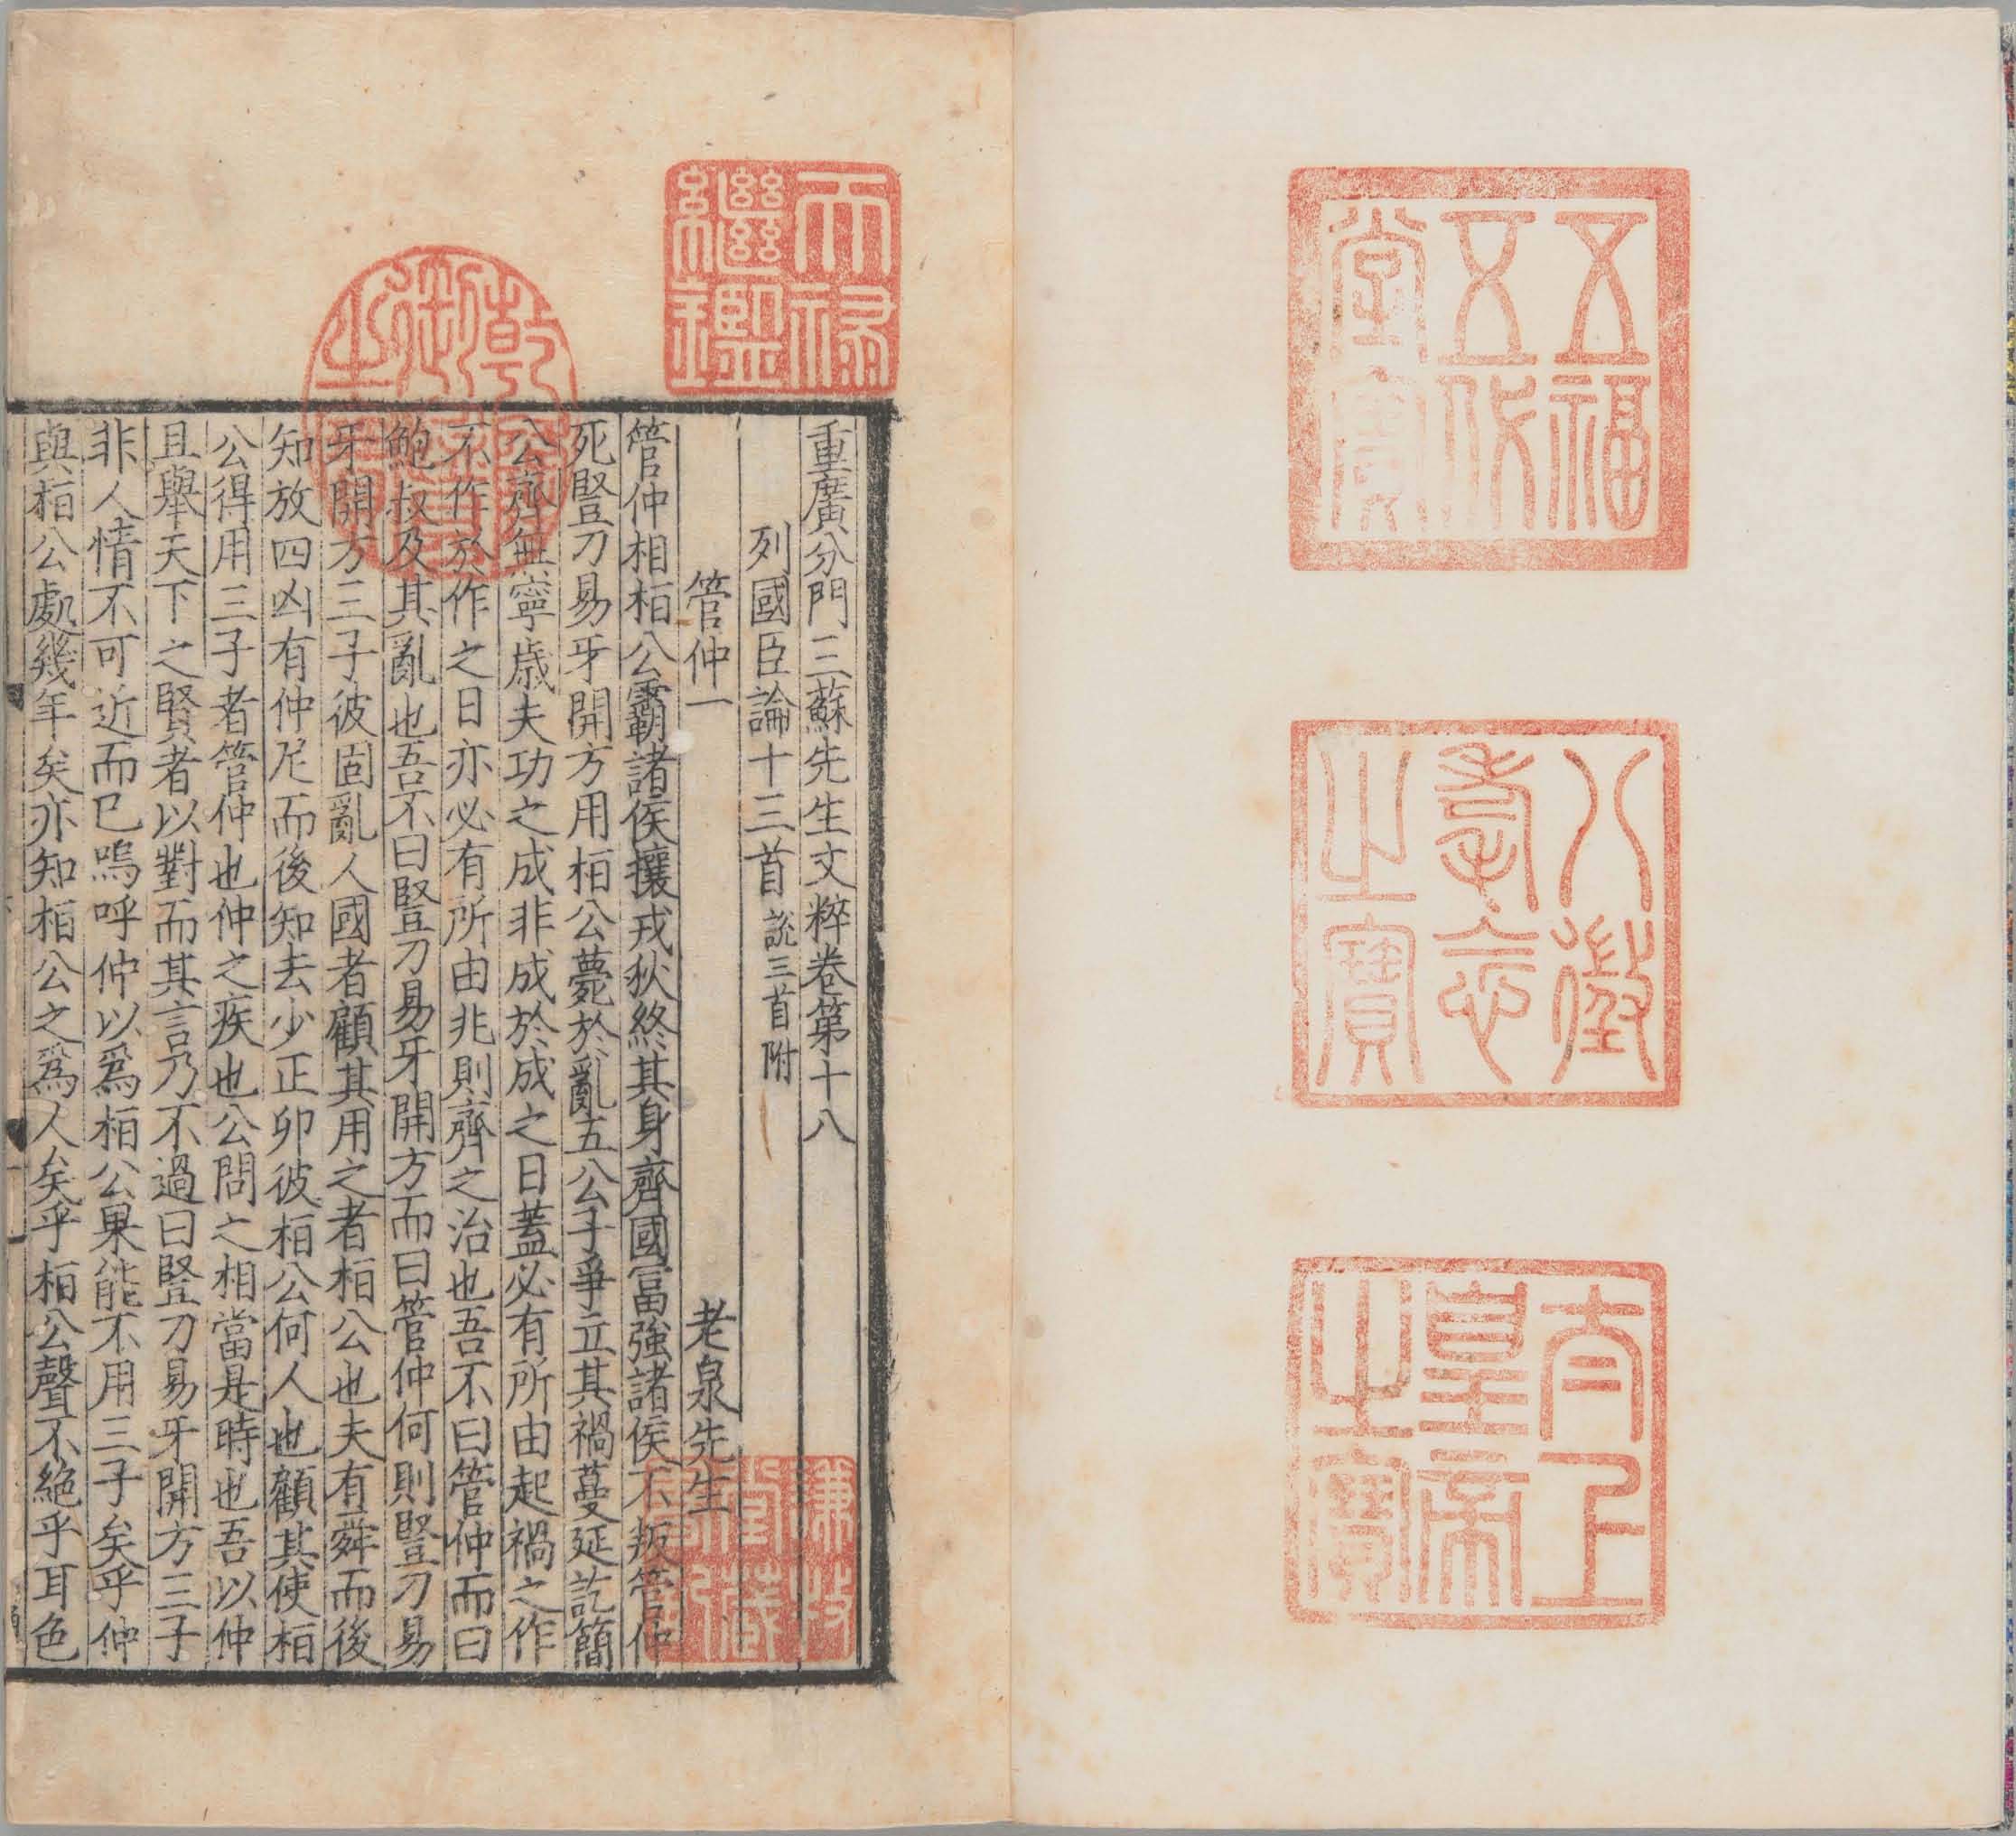 五福
五代
堂寶
八徵
耄念
之寶
太上
皇帝
之寶
天禄
繼鑑
乾隆
御覽
之寶
重廣分門三蘇先生文粹卷第十八
列國臣論十三首 説三首附
管仲一 老泉先生
管仲相桓公霸諸侯攘戎狄終其身齊國富強諸侯不叛管仲
死豎刀易牙開方用桓公薨於亂五公子爭立其禍蔓延訖簡
公齊無寧歳夫功之成非成於成之日蓋必有所由起禍之作
不作於作之日亦必有所由兆則齊之治也吾不曰管仲而曰
鮑叔及其亂也吾不曰豎刀易牙開方而曰管仲何則豎刀易
牙開方三子彼固亂人國者顧其用之者桓公也夫有舜而後
知放四凶有仲尼而後知去少正卯彼桓公何人也顧其使桓
公得用三子者管仲也仲之疾也公問之相當是時也吾以仲
且舉天下之賢者以對而其言乃不過曰豎刀易牙開方三子
非人情不可近而已嗚呼仲以爲桓公果能不用三子矣乎仲
與桓公處幾年矣亦知桓公之爲人矣乎桓公聲不絶乎耳色
謙牧
堂藏
書記